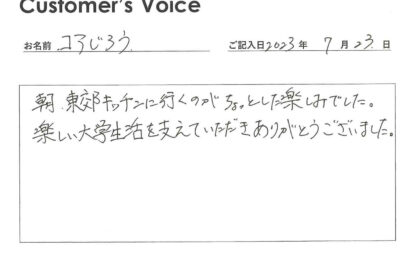 Customer's Voice
お名前 コろじろう ご記入日2023年 7月23日
朝、東郊キッチンに行くのがちょっとした楽しみでした。
楽しい大学生活を支えていただきありがとうございました。